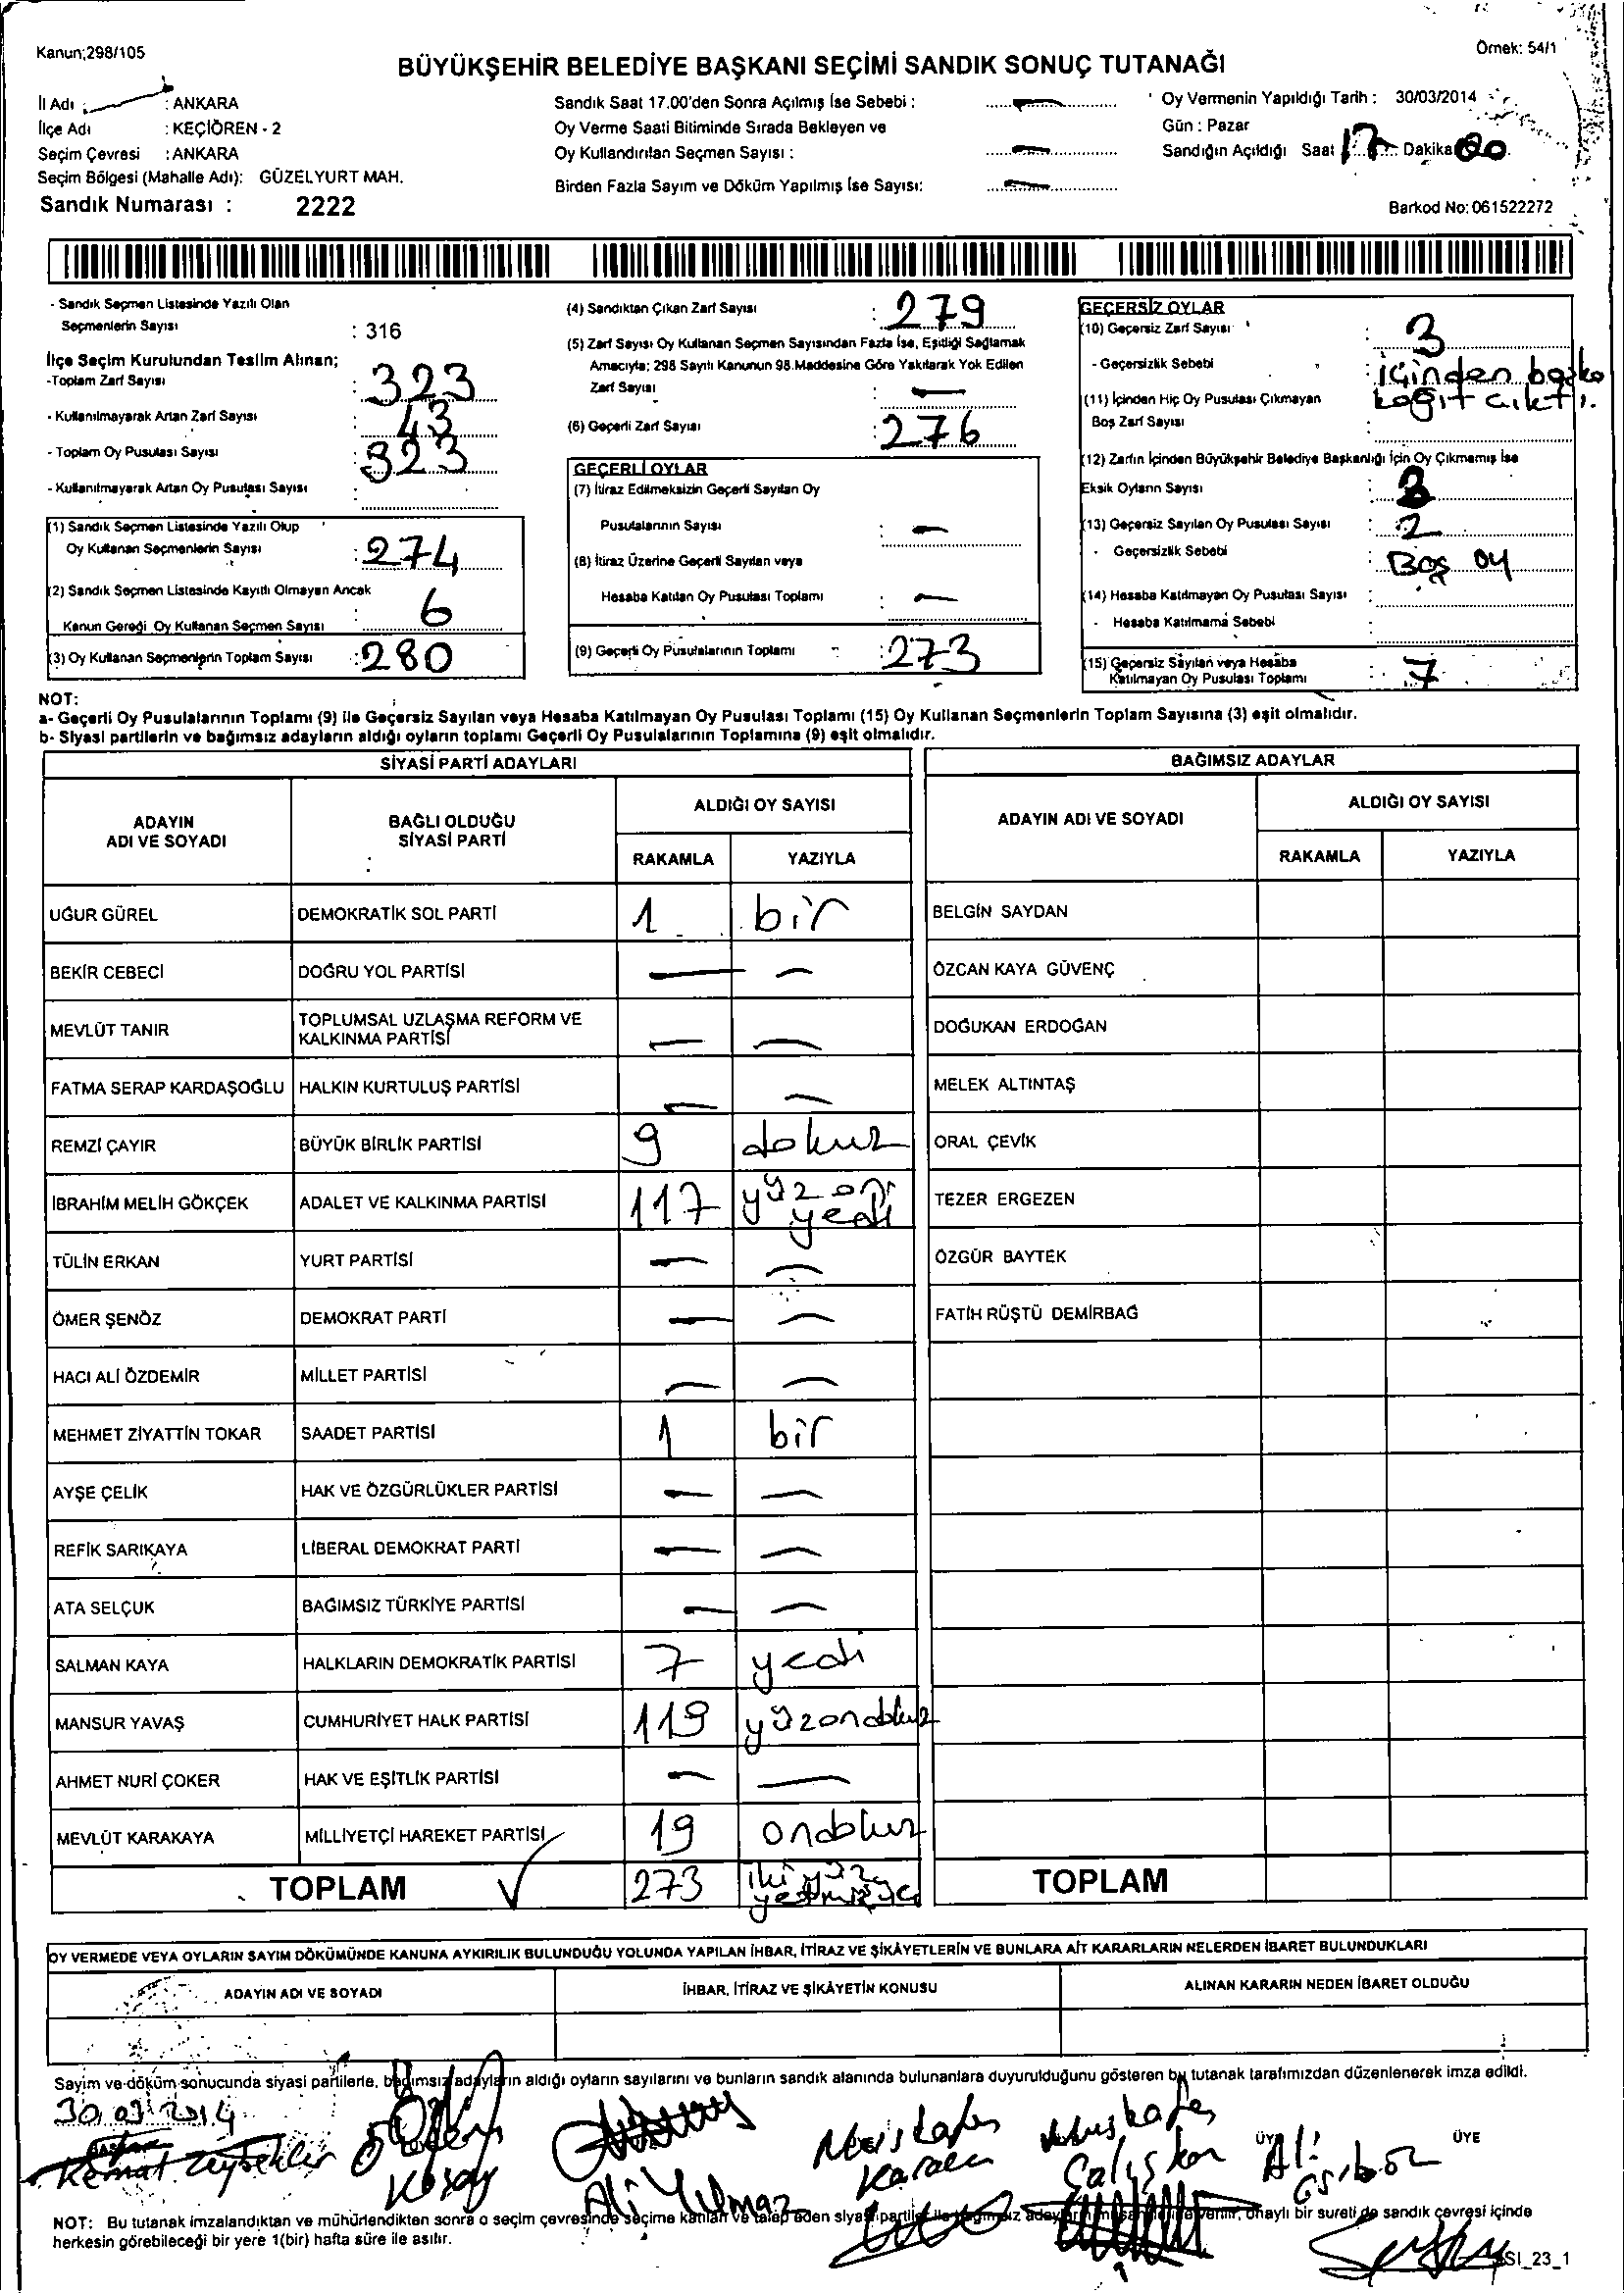 Kanun;298/105
Örnek: 54/1
BÜYÜKŞEHİR BELEDİYE BAŞKANI SEÇİMİ SANDIK SONUÇ TUTANAĞI
İl Adı : ANKARA
İlçe Adı : KEÇİÖREN - 2
Seçim Çevresi : ANKARA
Seçim Bölgesi (Mahalle Adı): GÜZELYURT MAH.
Sandık Numarası : 2222
Sandık Saat 17.00'den Sonra Açılmış İse Sebebi :
Oy Verme Saati Bitiminde Sırada Bekleyen ve
Oy Kullandırılan Seçmen Sayısı :
Birden Fazla Sayım ve Döküm Yapılmış İse Sayısı:
Oy Vermenin Yapıldığı Tarih : 30/03/2014
Gün : Pazar
Sandığın Açıldığı Saat 17 Dakika 00
Barkod No: 061522272
- Sandık Seçmen Listesinde Yazılı Olan
Seçmenlerin Sayısı : 316
İlçe Seçim Kurulundan Teslim Alınan;
-Toplam Zarf Sayısı : 323
- Kullanılmayarak Artan Zarf Sayısı : 43
- Toplam Oy Pusulası Sayısı : 323
- Kullanılmayarak Artan Oy Pusulası Sayısı :
(1) Sandık Seçmen Listesinde Yazılı Olup
Oy Kullanan Seçmenlerin Sayısı : 274
(2) Sandık Seçmen Listesinde Kayıtlı Olmayan Ancak
Kanun Gereği Oy Kullanan Seçmen Sayısı : 6
(3) Oy Kullanan Seçmenlerin Toplam Sayısı : 280
(4) Sandıktan Çıkan Zarf Sayısı : 279
(5) Zarf Sayısı Oy Kullanan Seçmen Sayısından Fazla İse, Eşitliği Sağlamak
Amacıyla; 298 Sayılı Kanunun 98.Maddesine Göre Yakılarak Yok Edilen
Zarf Sayısı : —
(6) Geçerli Zarf Sayısı : 276
GEÇERLİ OYLAR
(7) İtiraz Edilmeksizin Geçerli Sayılan Oy
Pusulalarının Sayısı : —
(8) İtiraz Üzerine Geçerli Sayılan veya
Hesaba Katılan Oy Pusulası Toplamı : —
(9) Geçerli Oy Pusulalarının Toplamı : 273
GEÇERSİZ OYLAR
(10) Geçersiz Zarf Sayısı : 3
- Geçersizlik Sebebi : içinden başka
kağıt çıktı.
(11) İçinden Hiç Oy Pusulası Çıkmayan
Boş Zarf Sayısı :
(12) Zarfın İçinden Büyükşehir Belediye Başkanlığı İçin Oy Çıkmamış İse
Eksik Oyların Sayısı : 3
(13) Geçersiz Sayılan Oy Pusulası Sayısı : 2
- Geçersizlik Sebebi : Boş oy
(14) Hesaba Katılmayan Oy Pusulası Sayısı :
- Hesaba Katılmama Sebebi :
(15) Geçersiz Sayılan veya Hesaba
Katılmayan Oy Pusulası Toplamı : 7
NOT:
a- Geçerli Oy Pusulalarının Toplamı (9) ile Geçersiz Sayılan veya Hesaba Katılmayan Oy Pusulası Toplamı (15) Oy Kullanan Seçmenlerin Toplam Sayısına (3) eşit olmalıdır.
b- Siyasi partilerin ve bağımsız adayların aldığı oyların toplamı Geçerli Oy Pusulalarının Toplamına (9) eşit olmalıdır.
SİYASİ PARTİ ADAYLARI
ADAYIN ADI VE SOYADI BAĞLI OLDUĞU SİYASİ PARTİ ALDIĞI OY SAYISI
RAKAMLA YAZIYLA
UĞUR GÜREL DEMOKRATİK SOL PARTİ 1 bir
BEKİR CEBECİ DOĞRU YOL PARTİSİ — —
MEVLÜT TANIR TOPLUMSAL UZLAŞMA REFORM VE KALKINMA PARTİSİ — —
FATMA SERAP KARDAŞOĞLU HALKIN KURTULUŞ PARTİSİ — —
REMZİ ÇAYIR BÜYÜK BİRLİK PARTİSİ 9 dokuz
İBRAHİM MELİH GÖKÇEK ADALET VE KALKINMA PARTİSİ 117 yüz on yedi
TÜLİN ERKAN YURT PARTİSİ — —
ÖMER ŞENÖZ DEMOKRAT PARTİ — —
HACI ALİ ÖZDEMİR MİLLET PARTİSİ — —
MEHMET ZİYATTİN TOKAR SAADET PARTİSİ 1 bir
AYŞE ÇELİK HAK VE ÖZGÜRLÜKLER PARTİSİ — —
REFİK SARIKAYA LİBERAL DEMOKRAT PARTİ — —
ATA SELÇUK BAĞIMSIZ TÜRKİYE PARTİSİ — —
SALMAN KAYA HALKLARIN DEMOKRATİK PARTİSİ 7 yedi
MANSUR YAVAŞ CUMHURİYET HALK PARTİSİ 119 yüzondokuz
AHMET NURİ ÇOKER HAK VE EŞİTLİK PARTİSİ — —
MEVLÜT KARAKAYA MİLLİYETÇİ HAREKET PARTİSİ 19 ondokuz
TOPLAM 273 iki yüz yetmişüç
BAĞIMSIZ ADAYLAR
ADAYIN ADI VE SOYADI ALDIĞI OY SAYISI
RAKAMLA YAZIYLA
BELGİN SAYDAN
ÖZCAN KAYA GÜVENÇ
DOĞUKAN ERDOĞAN
MELEK ALTINTAŞ
ORAL ÇEVİK
TEZER ERGEZEN
ÖZGÜR BAYTEK
FATİH RÜŞTÜ DEMİRBAĞ
TOPLAM
OY VERMEDE VEYA OYLARIN SAYIM DÖKÜMÜNDE KANUNA AYKIRILIK BULUNDUĞU YOLUNDA YAPILAN İHBAR, İTİRAZ VE ŞİKAYETLERİN VE BUNLARA AİT KARARLARIN NELERDEN İBARET BULUNDUKLARI
ADAYIN ADI VE SOYADI İHBAR, İTİRAZ VE ŞİKAYETİN KONUSU ALINAN KARARIN NEDEN İBARET OLDUĞU
Sayım ve döküm sonucunda siyasi partilerle, bağımsız adayların aldığı oyların sayılarını ve bunların sandık alanında bulunanlara duyurulduğunu gösteren bu tutanak tarafımızdan düzenlenerek imza edildi.
30.03.2014
BAŞKAN ÜYE ÜYE
Kemal
Ali Yılmaz
Mustafa
Mustafa Çalışkan
Ali
NOT: Bu tutanak imzalandıktan ve mühürlendikten sonra o seçim çevresinde seçime katılan ve talep eden siyasi partiler ile bağımsız onaylı bir sureti de sandık çevresi içinde
herkesin görebileceği bir yere 1(bir) hafta süre ile asılır.
SI_23_1